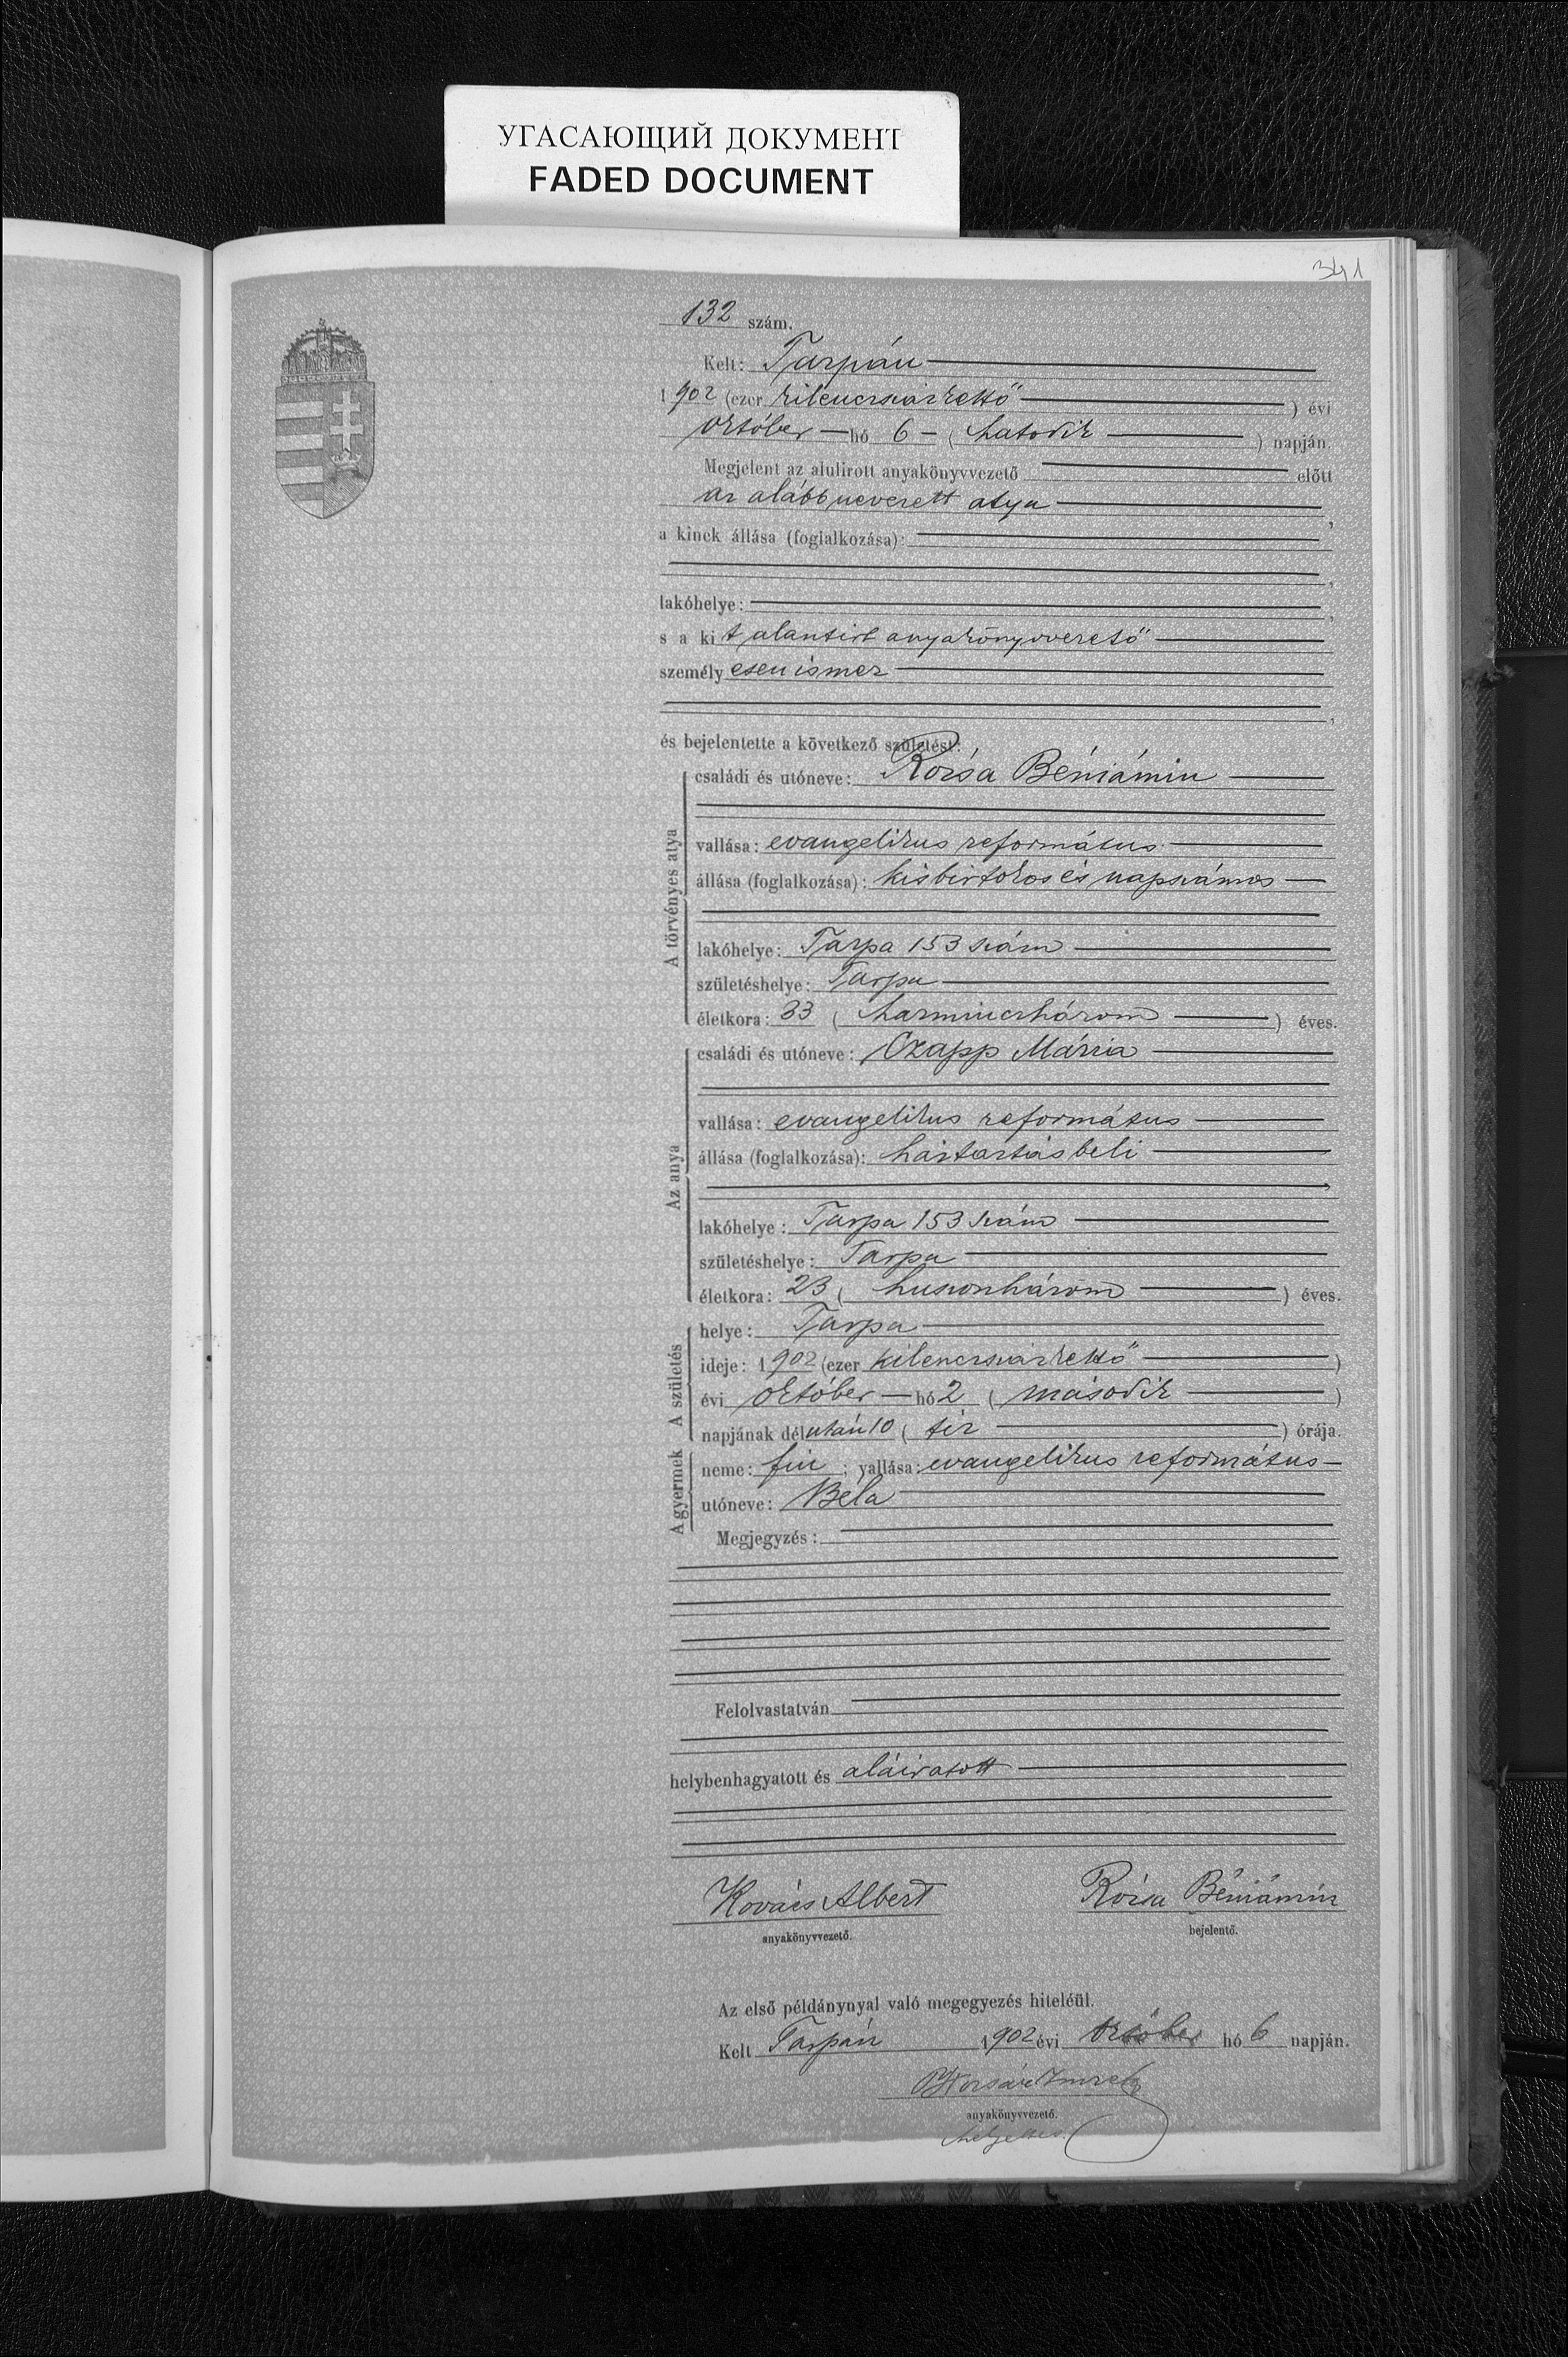 УГАСАЮЩИЙ ДОКУМЕНТ
FADED DOCUMENT
341
132 szám.
Kelt: Tarpán
1902 (ezer kilenczszázkettő) évi
október hó 6 (hatodik) napján.
Megjelent az alulirott anyakönyvvezető előtt
az alább nevezett atya,
a kinek állása (foglalkozása):
,
lakóhelye: ,
s a kit alantirt anyakönyvvezető
személyesen ismer
,
és bejelentette a következő születést:
A törvényes atya
családi és utóneve: Rózsa Béniámin
vallása: evangelikus református
állása (foglalkozása): kisbirtokos és napszámos
lakóhelye: Tarpa 153 szám
születéshelye: Tarpa
életkora: 33 (harminczhárom) éves.
Az anya
családi és utóneve: Czapp Mária
vallása: evangelikus református
állása (foglalkozása): háztartásbeli
lakóhelye: Tarpa 153 szám
születéshelye: Tarpa
életkora: 23 (huszonhárom) éves.
A születés
helye: Tarpa
ideje: 1902 (ezer kilenczszázkettő)
évi október hó 2 (második)
napjának délután 10 (tíz) órája.
A gyermek
neme: fiu; vallása: evangelikus református
utóneve: Béla
Megjegyzés:
Felolvastatván
helybenhagyatott és aláiratott
Kovács Albert Rózsa Béniámin
anyakönyvvezető. bejelentő.
Az első példánynyal való megegyezés hiteléül.
Kelt Tarpán 1902 évi október hó 6 napján.
anyakönyvvezető.
helyettes.